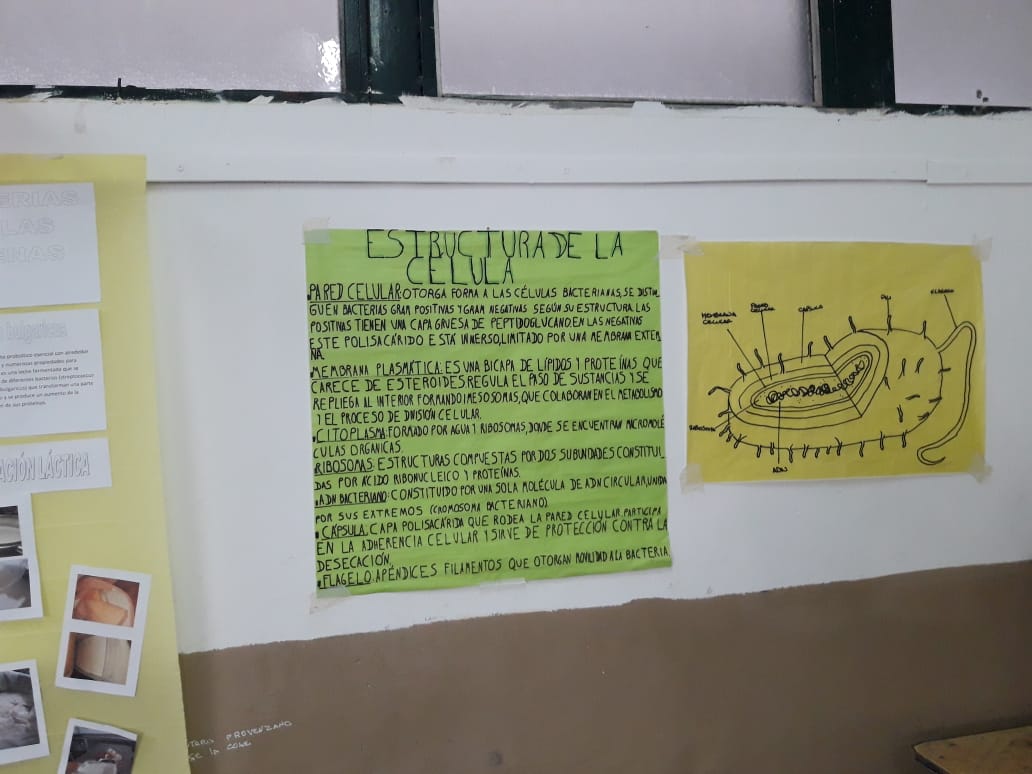 ERIAS
LAS
ENAS
bulgaricus
y numerosas propiedades para
es una leche fermentada que se
de diferentes bacterias (streptococcus
bulgaricus) que transforman una parte
y se produce un aumento de la
de sus proteínas.
ACIÓN LÁCTICA
ESTRUCTURA DE LA
CELULA
PARED CELULAR: OTORGA FORMA A LAS CÉLULAS BACTERIANAS, SE DISTIN
GUEN BACTERIAS GRAM POSITIVAS Y GRAM NEGATIVAS SEGÚN SU ESTRUCTURA. LAS
POSITIVAS TIENEN UNA CAPA GRUESA DE PEPTIDOGLUCANO. EN LAS NEGATIVAS
ESTE POLISACÁRIDO ESTÁ INMERSO, LIMITADO POR UNA MEMBRANA EXTER
NA.
MEMBRANA PLASMÁTICA: ES UNA BICAPA DE LÍPIDOS Y PROTEÍNAS QUE
CARECE DE ESTEROIDES. REGULA EL PASO DE SUSTANCIAS Y SE
REPLIEGA AL INTERIOR FORMANDO MESOSOMAS, QUE COLABORAN EN EL METABOLISMO
Y EL PROCESO DE DIVISIÓN CELULAR.
CITOPLASMA: FORMADO POR AGUA Y RIBOSOMAS, DONDE SE ENCUENTRAN MICROMOLÉ
CULAS ORGÁNICAS.
RIBOSOMAS: ESTRUCTURAS COMPUESTAS POR DOS SUBUNIDADES CONSTITUI
DAS POR ÁCIDO RIBONUCLEICO Y PROTEÍNAS.
ADN BACTERIANO: CONSTITUIDO POR UNA SOLA MOLÉCULA DE ADN CIRCULAR, UNIDA
POR SUS EXTREMOS (CROMOSOMA BACTERIANO)
CÁPSULA: CAPA POLISACÁRIDA QUE RODEA LA PARED CELULAR. PARTICIPA
EN LA ADHERENCIA CELULAR Y SIRVE DE PROTECCIÓN CONTRA LA
DESECACIÓN.
FLAGELO: APÉNDICES FILAMENTOS QUE OTORGAN MOVILIDAD A LA BACTERIA
MEMBRANA
CELULAR
PARED
CELULAR
CAPSULA
PILI
FLAGELO
RIBOSOMA
ADN
PROVENZANO